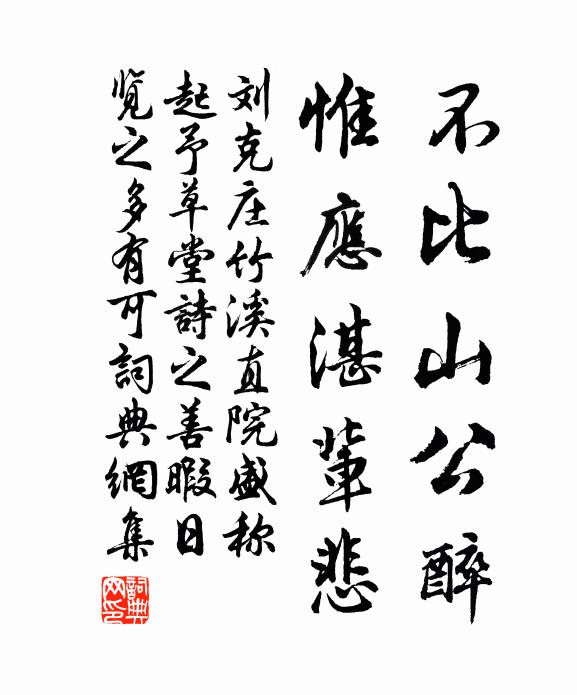 不比山公醉
惟應湛輩悲
刘克庄竹溪直院盛称
起予草堂詩之善暇日
览之多有可詞典網集
詞典网印